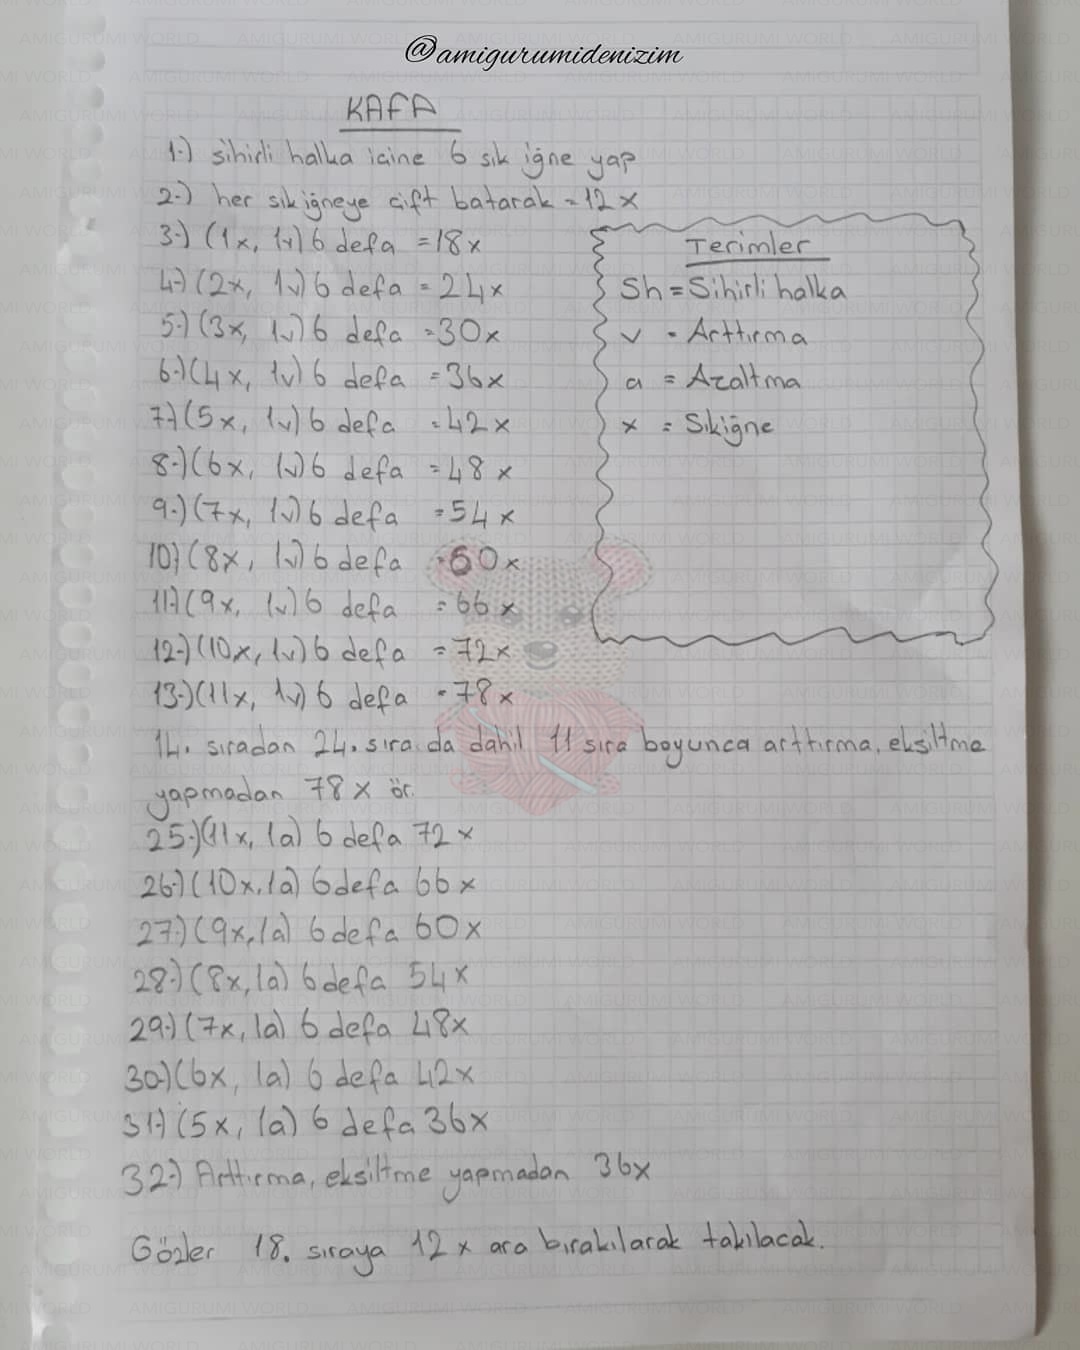 @amigurumidenizim
KAFA
1-) sihirli halka icine 6 sık iğne yap
2-) her sık iğneye çift batarak = 12 x
3-) (1x, 1v) 6 defa = 18x
4-) (2x, 1v) 6 defa = 24x
5-) (3x, 1v) 6 defa = 30x
6-) (4x, 1v) 6 defa = 36x
7-) (5x, 1v) 6 defa = 42x
8-) (6x, 1v) 6 defa = 48x
9-) (7x, 1v) 6 defa = 54x
10) (8x, 1v) 6 defa = 60x
11-) (9x, 1v) 6 defa = 66x
12-) (10x, 1v) 6 defa = 72x
13-) (11x, 1v) 6 defa = 78x
Terimler
Sh = Sihirli halka
v = Arttırma
a = Azaltma
x = Sıkiğne
14. sıradan 24. sıra da dahil 11 sıra boyunca arttırma, eksiltme
yapmadan 78 x ör.
25-) (11x, 1a) 6 defa 72x
26-) (10x, 1a) 6 defa 66x
27-) (9x, 1a) 6 defa 60x
28-) (8x, 1a) 6 defa 54x
29-) (7x, 1a) 6 defa 48x
30-) (6x, 1a) 6 defa 42x
31-) (5x, 1a) 6 defa 36x
32-) Arttırma, eksiltme yapmadan 36x
Gözler 18. sıraya 12 x ara bırakılarak takılacak.
AMIGURUMI WORLD